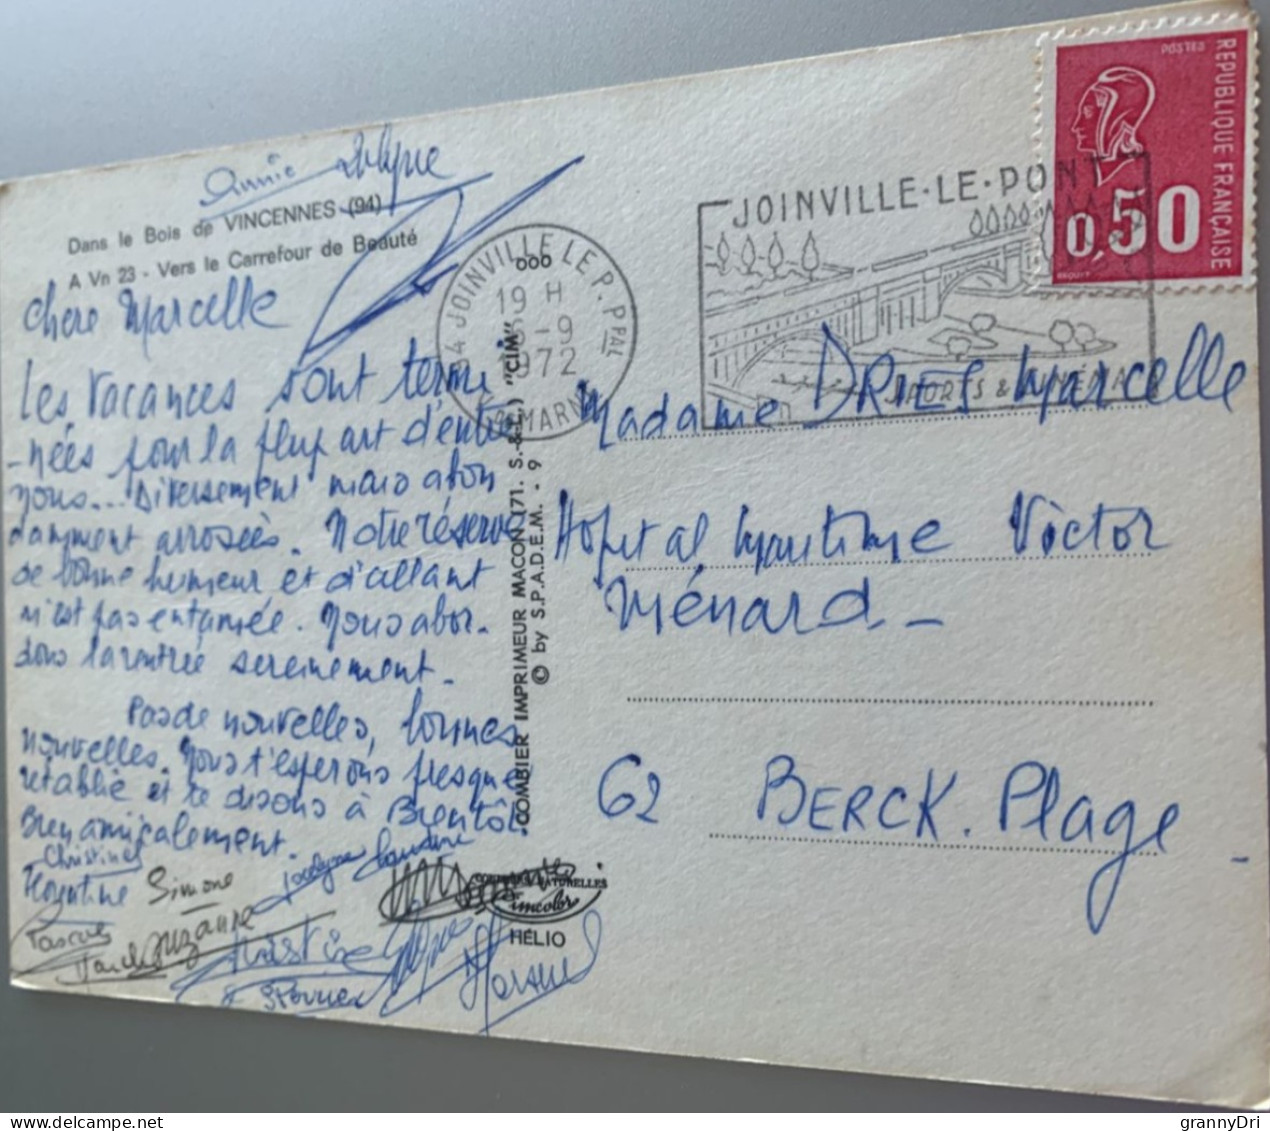 Annie
Dans le Bois de VINCENNES (94)
A Vn 23 - Vers le Carrefour de Beauté
Chère Marcelle
Les vacances sont termi
-nées pour la plupart d'entre
nous... Diversement mais abon
damment arrosées. Notre réserve
de bonne humeur et d'allant
n'est pas entamée. Nous abor-
dons la rentrée sereinement.
Pas de nouvelles, bonnes
nouvelles. Nous t'espérons presque
rétablie et te disons à Bientôt
Bien amicalement.
Christine
Florentine
Simone
Jocelyne
Pascue
Suzanne
Christine
COMBIER IMPRIMEUR MACON (71. S.-&-L.) "CIM"
© by S.P.A.D.E.M. - 9
COULEURS NATURELLES
Cimcolor
HÉLIO
94 JOINVILLE LE P. Ppal
19 H
-9
1972
VAL DE MARNE
JOINVILLE-LE-PONT
SPORTS &
POSTES
REPUBLIQUE FRANÇAISE
0,50
BEQUET
Madame DRIES Marcelle
Hopital Maritime Victor
Ménard -
62 BERCK. Plage -
grannyDri